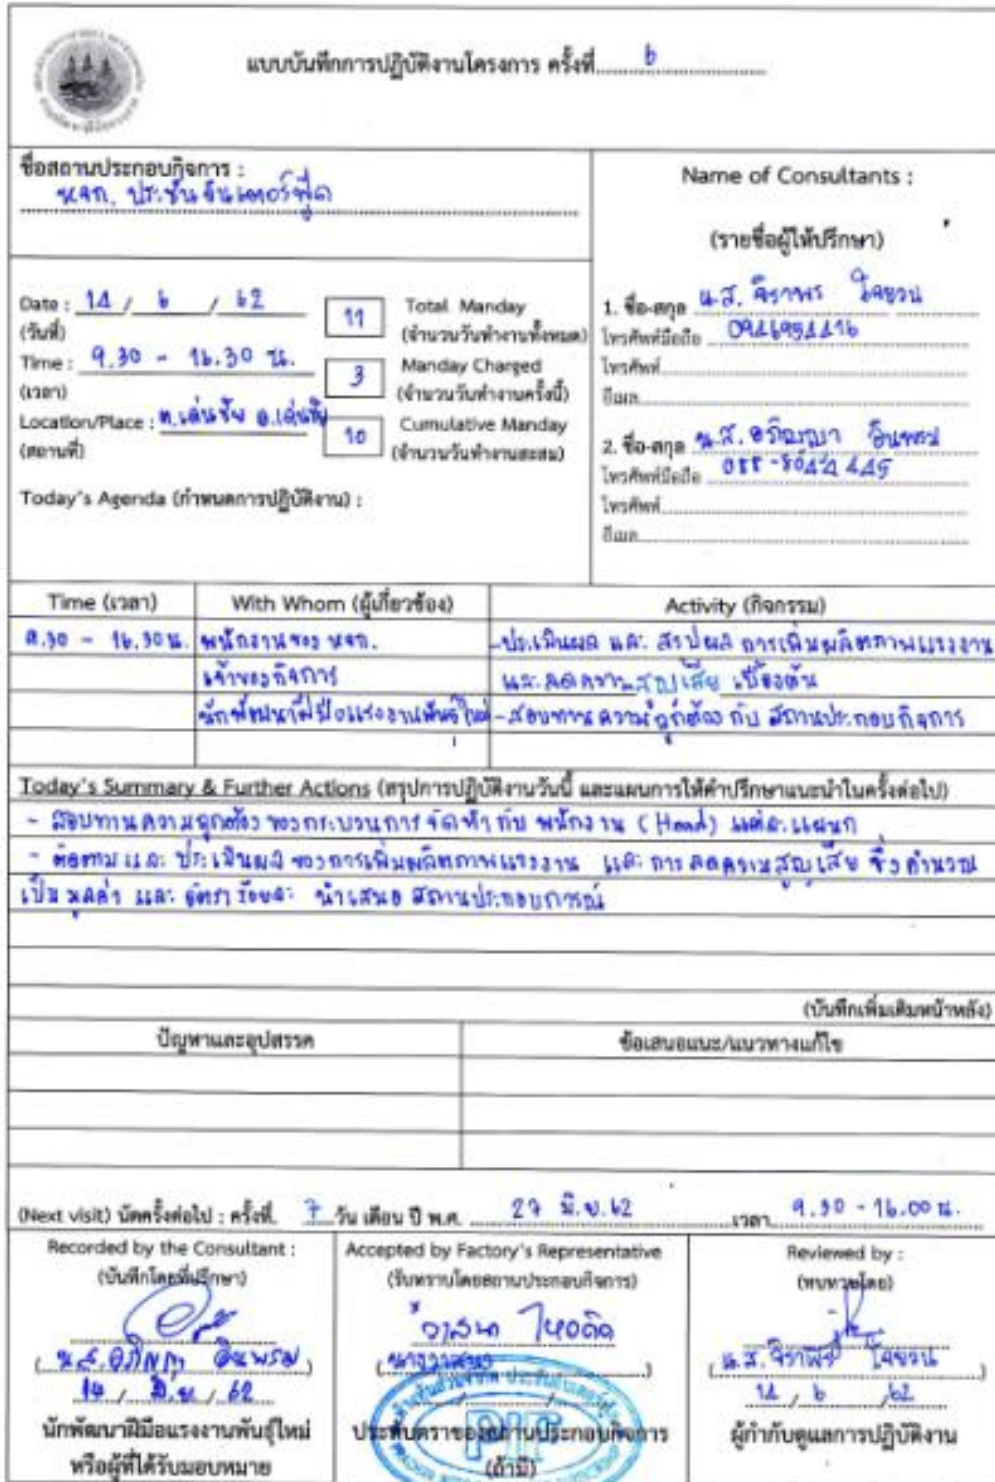 แบบบันทึกการปฏิบัติงานโครงการ ครั้งที่ 6
ชื่อสถานประกอบกิจการ :
หจก. ประชันอินเตอร์ฟู๊ด
Name of Consultants :
(รายชื่อผู้ให้ปรึกษา)
Date : 14 / 6 / 62
(วันที่)
Time : 9.30 - 16.30 น.
(เวลา)
Location/Place : ต.เด่นชัย อ.เด่นชัย
(สถานที่)
11 Total Manday
(จำนวนวันทำงานทั้งหมด)
3 Manday Charged
(จำนวนวันทำงานครั้งนี้)
10 Cumulative Manday
(จำนวนวันทำงานสะสม)
Today's Agenda (กำหนดการปฏิบัติงาน) :
1. ชื่อ-สกุล น.ส. จิราพร ใจยวน
โทรศัพท์มือถือ
โทรศัพท์
อีเมล
2. ชื่อ-สกุล น.ส. อภิญญา อินพรม
โทรศัพท์มือถือ
โทรศัพท์
อีเมล
Time (เวลา) With Whom (ผู้เกี่ยวข้อง) Activity (กิจกรรม)
9.30 - 16.30 น. พนักงานของ หจก. -ประเมินผล และ สรุปผล การเพิ่มผลิตภาพแรงงาน
เจ้าของกิจการ และลดความสูญเสีย เบื้องต้น
นักพัฒนาฝีมือแรงงานพันธุ์ใหม่ -สอบทานความถูกต้อง กับ สถานประกอบกิจการ
Today's Summary & Further Actions (สรุปการปฏิบัติงานวันนี้ และแผนการให้คำปรึกษาแนะนำในครั้งต่อไป)
- สอบทานความถูกต้อง ของกระบวนการ จัดทำ กับ พนักงาน (Head) แต่ละแผนก
- ติดตาม และ ประเมินผล ของการเพิ่มผลิตภาพแรงงาน และ การลดความสูญเสีย ซึ่งคำนวณ
เป็นมูลค่า และ อัตราร้อยละ นำเสนอ สถานประกอบการณ์
(บันทึกเพิ่มเติมหน้าหลัง)
ปัญหาและอุปสรรค ข้อเสนอแนะ/แนวทางแก้ไข
(Next visit) นัดครั้งต่อไป : ครั้งที่ 7 วัน เดือน ปี พ.ศ. 27 มิ.ย. 62 เวลา 9.30 - 16.00 น.
Recorded by the Consultant :
(บันทึกโดยที่ปรึกษา)
(น.ส. อภิญญา อินพรม)
14 / มิ.ย / 62
นักพัฒนาฝีมือแรงงานพันธุ์ใหม่
หรือผู้ที่ได้รับมอบหมาย
Accepted by Factory's Representative
(รับทราบโดยสถานประกอบกิจการ)
ประทับตราของสถานประกอบกิจการ
(ถ้ามี)
Reviewed by :
(ทบทวนโดย)
(น.ส. จิราพร ใจยวน)
14 / 6 / 62
ผู้กำกับดูแลการปฏิบัติงาน